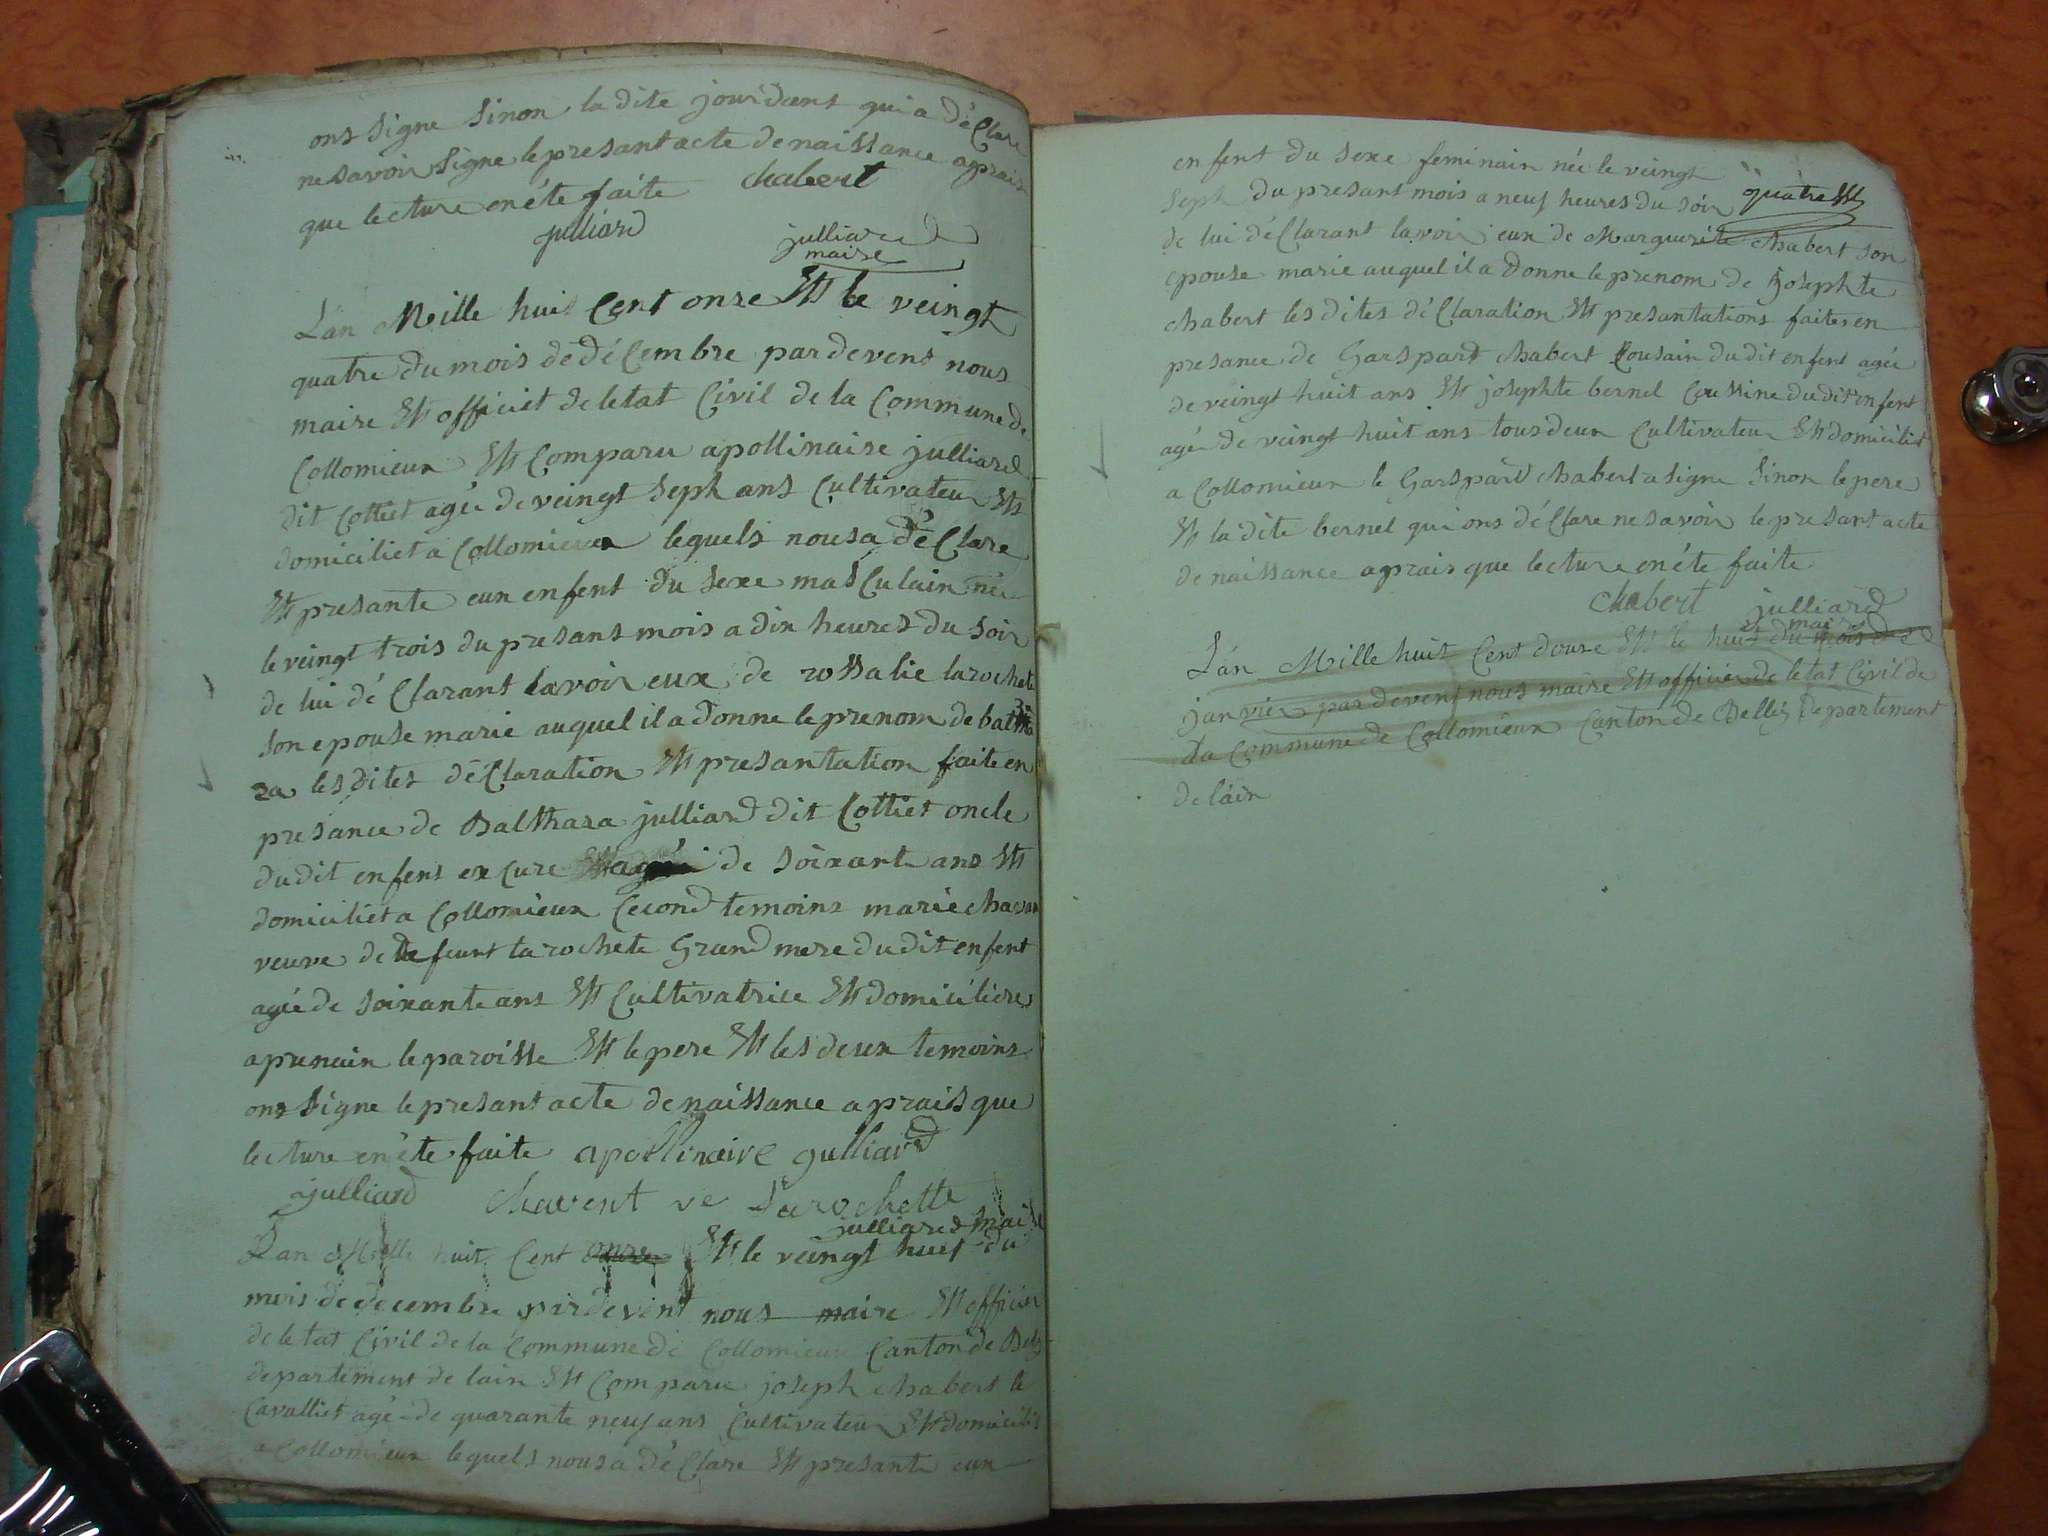 ons signe sinon la dite jouidans qui a déClare
ne savoir signe le presant acte de naissance aprais
que lecture en éte faite chabert
julliard
julliard
maire
L'an Mille huit Cent onze Et le veingt
quatre du mois de déCembre par devent nous
maire Et officiet de letat Civil de la Commune de
Collomieux Et Comparu apollinaire julliard
dit Cottiet agée de veingt seph ans Cultivateur Et
domiciliet a Collomieux lequels nous a déClare
Et presante eun enfent du sexe masCulain née
le veingt trois du presans mois a dix heures du soir
de lui déClarant lavoir eux de rossalie larochete
son epouse marie auquel il a donne le prenom de baltha
za les dites déClaration Et presantation faite en
presance de Balthaza julliard dit Cottiet oncle
du dit enfent ex Cure de soixante ans Et
domiciliet a Collomieux Cecond temoins marie chavan
veuve de defeunt larochete Grand mere du dit enfent
agée de soixante ans Et Cultivatrice Et domiciliere
a prenain le paroisse Et le pere Et les deux temoins
ons signe le presant acte de naissance aprais que
lecture en éte faite apollinaire gulliard
ajulliard chavent ve Larochette
julliard maire
L'an Mille huit Cent onze Et le veingt huit du
mois de decembre par devent nous maire Et officier
de letat Civil de la Commune de Collomieux Canton de Belley
departement de lain Et Comparu joseph chabert le
Cavalliet agée de quarante neuf ans Cultivateur Et domicilié
a Collomieux lequels nous a déClare Et presante eun
enfent du sexe feminain née le veingt
seph du presant mois a neuf heures du soir quatre
de lui déClarant lavoir eux de Marguerite chabert son
epouse marie auquel il a donne le prenom de josephte
chabert les dites déClaration Et presantations faites en
presance de Garspard chabert Cousain du dit enfent agée
de veingt huit ans Et josephte bernel Coussine du dit enfent
agée de veingt huit ans tous deux Cultivateur Et domiciliet
a Collomieux le Garspard chabert a signe sinon le pere
Et la dite bernel qui ons déClare ne savoir le presant acte
de naissance aprais que lecture en éte faite
chabert julliard
maire
L'an Mille huit Cent douze Et le huit du mois de
janvier par devent nous maire Et officier de letat Civil de
la Commune de Collomieux Canton de Belley departement
de lain